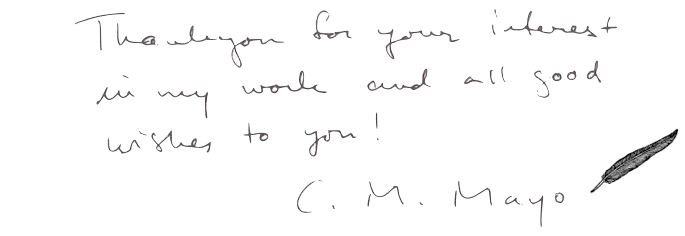 Thank you for your interest
in my work and all good
wishes to you!
C. M. Mayo